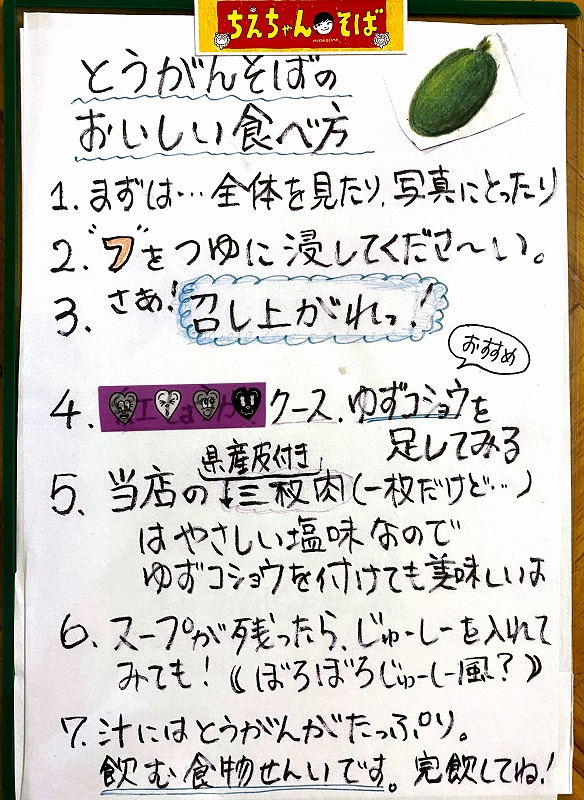 ちえちゃんそば
とうがんそばの
おいしい食べ方
1. まずは…全体を見たり、写真にとったり
2. "フ"をつゆに浸してくださ〜い。
3. さあ!召し上がれっ!
おすすめ
4. クース、ゆずコショウを
足してみる
県産皮付き
5. 当店の↓三枚肉(一枚だけど…)
はやさしい塩味なので
ゆずコショウを付けても美味しいよ
6. スープが残ったら、じゅーしーを入れて
みても!《ぼろぼろじゅーしー風?》
7. 汁にはとうがんがたっぷり。
飲む食物せんいです。完飲してね!